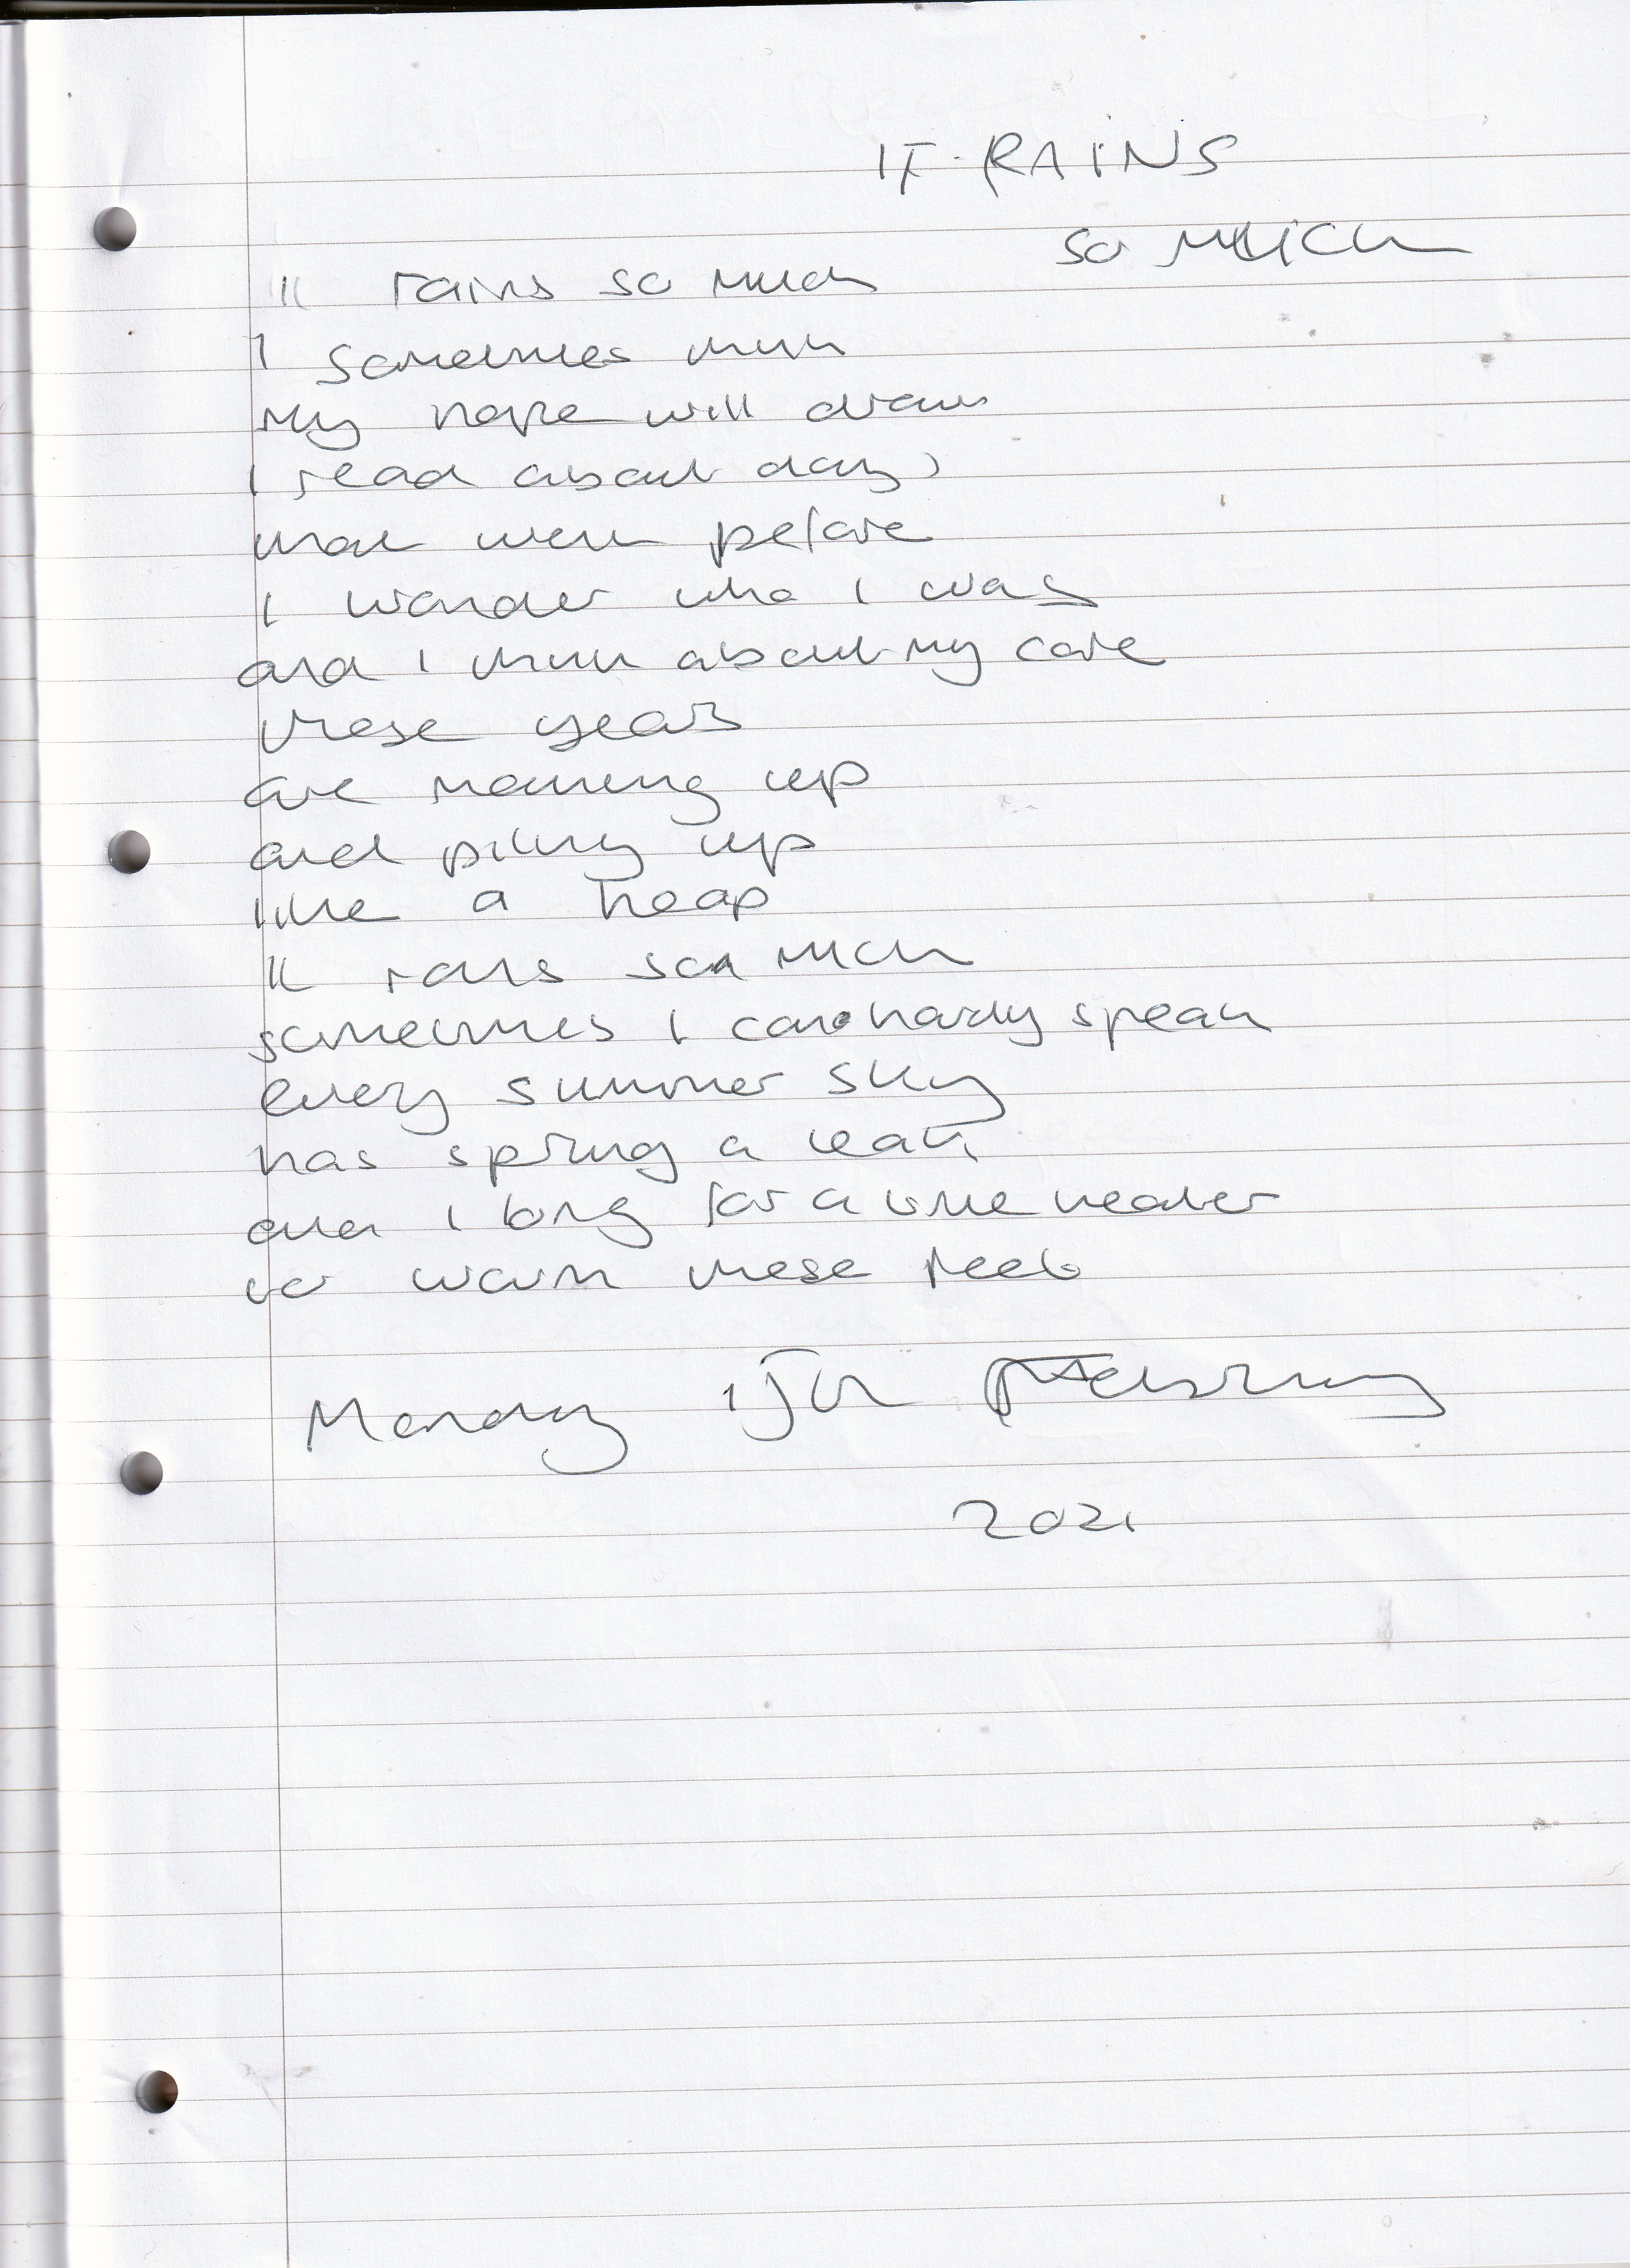 IT RAINS
SO MUCH
It rains so much
I sometimes think
my hope will drown
I read about days
that went before
I wonder who I was
and I think about my core
these years
are mounting up
and piling up
like a heap
It rains so much
sometimes I can hardly speak
every summer sky
has sprung a leak
and I long for a little heater
to warm these feet
Monday 15th February
2021